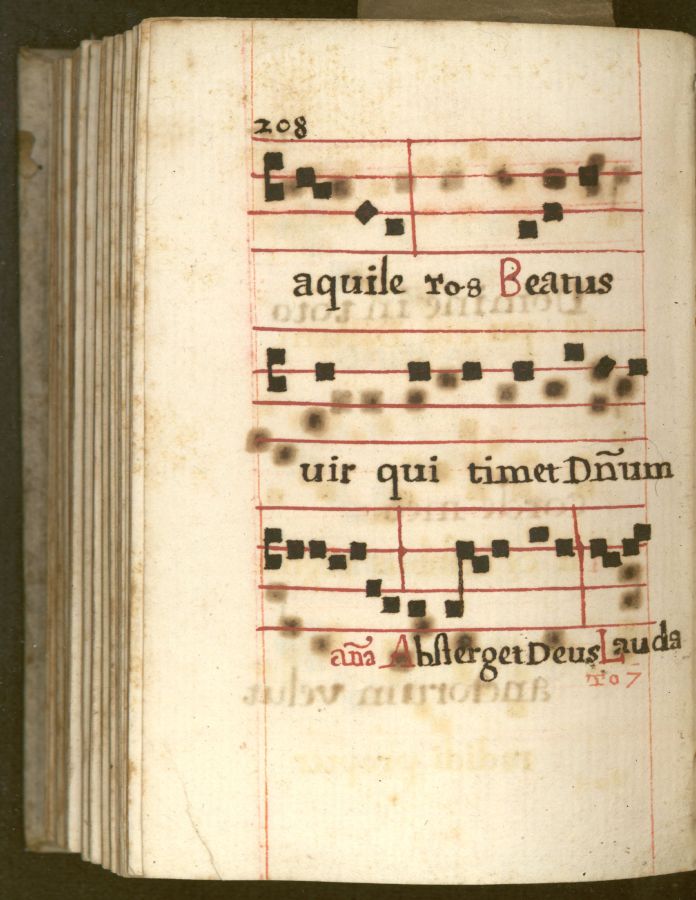 208
aquile ro 8 Beatus
uir qui timet Dñum
aña Absterget Deus Lauda
To 7